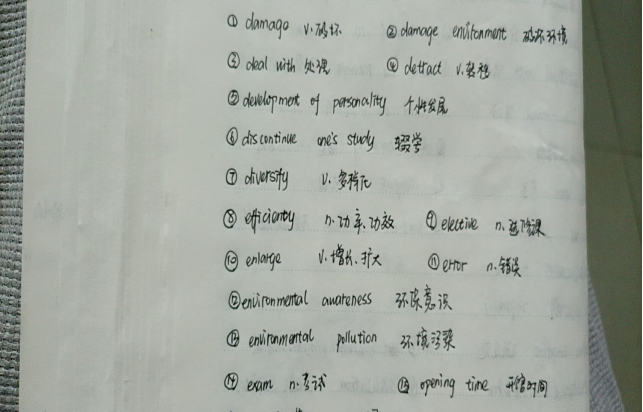 ① damage v. 破坏 ② damage environment 破坏环境
③ deal with 处理 ④ detract v. 转移
⑤ development of personality 个性发展
⑥ discontinue one's study 辍学
⑦ diversify v. 多样化
⑧ efficiency n. 功率、功效 ⑨ elective n. 选修课
⑩ enlarge v. 增长、扩大 ⑪ error n. 错误
⑫ environmental awareness 环保意识
⑬ environmental pollution 环境污染
⑭ exam n. 考试 ⑮ opening time 开馆时间